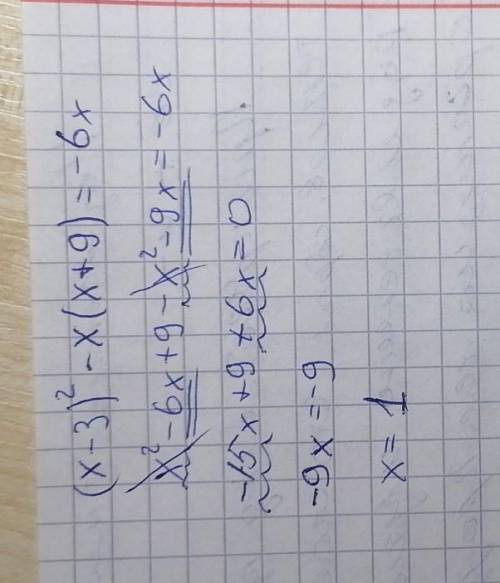 (x-3)² - x(x+9) = -6x
x² - 6x + 9 - x² - 9x = -6x
-15x + 9 + 6x = 0
-9x = -9
x = 1